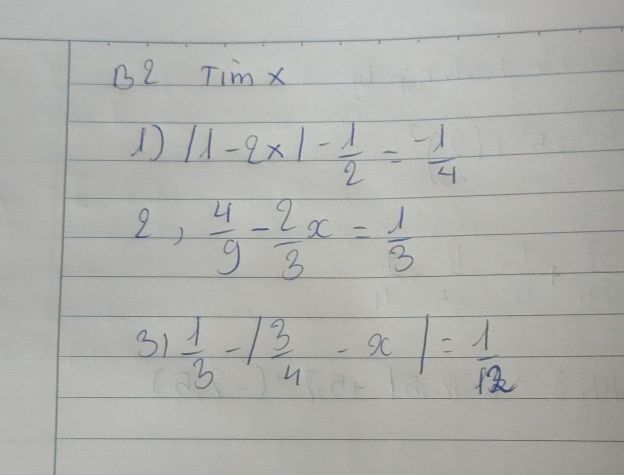 B2 Tìm x
1) |1 - 2x| - 1/2 = -1/4
2, 4/9 - 2/3 x = 1/3
3) 1/3 - |3/4 - x| = 1/12